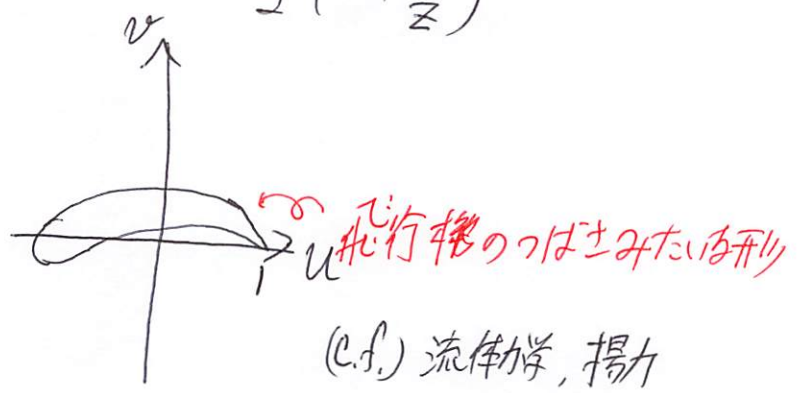 v
u
1
飛行機のつばさみたいな形
(c.f.) 流体力学, 揚力